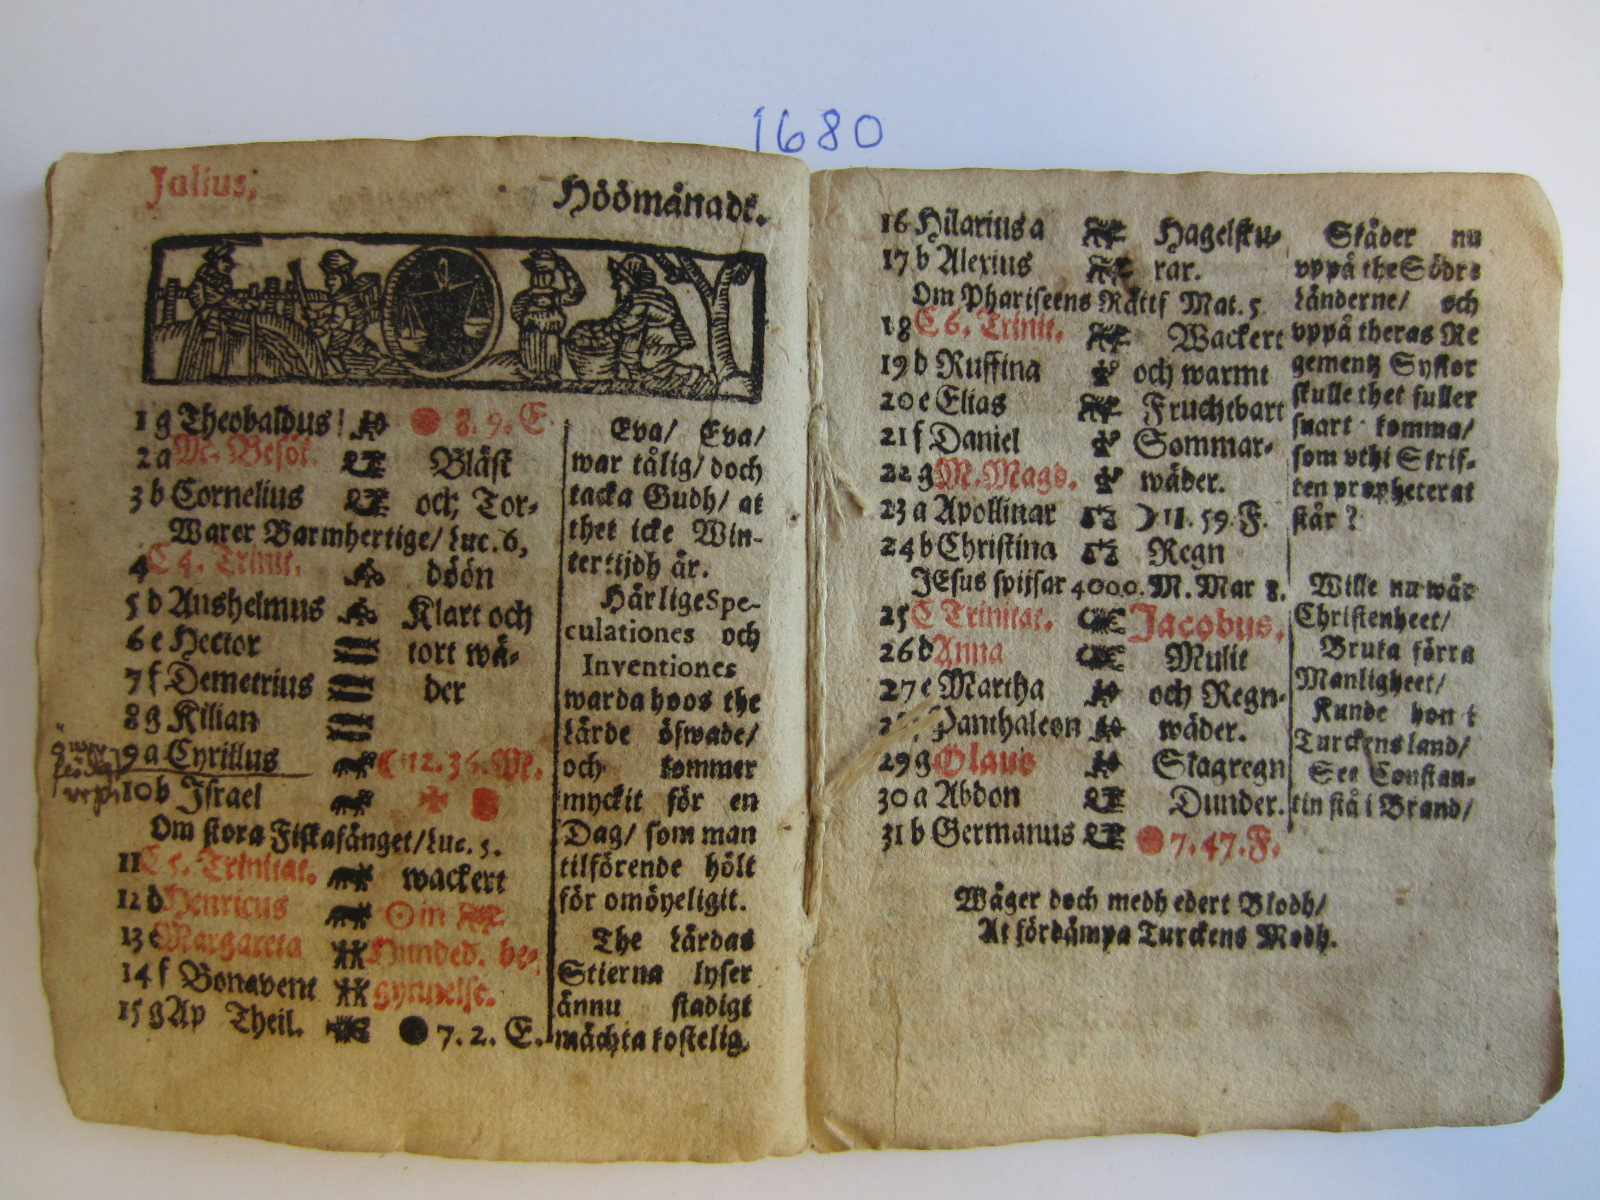 1680
Julius,
Höömånadt.
1 g Theobaldus 8. 9. E.
2 a M. Besök. Blåst
3 b Cornelius och Tor-
Warer Barmhertige/ Luc. 6,
4 C 4. Trinit. döön
5 d Anshelmus Klart och
6 e Hector tort wä-
7 f Demetrius der
8 g Kilian
9 a Cyrillus 12. 36. M.
10 b Israel
Om stora Fiskafänget/ Luc. 5.
11 C 5. Trinitat. wackert
12 d Henricus in
13 e Margareta Hunded. be-
14 f Bonavent gynnelse.
15 g Ap Theil. 7. 2. E.
Eva/ Eva/
war tålig/ doch
tacka Gudh/ at
thet icke Win-
tertijdh är.
Härlige Spe-
culationes och
Inventiones
warda hoos the
Lärde öfwade/
och kommer
myckit för en
Dag/ som man
tilförende hölt
för omöyeligit.
The Lärdas
Stierna lyser
ännu stadigt
mächta kostelig.
16 Hilarius a Hagelsku-
17 b Alexius rar.
Om Phariseens Rättf Mat. 5
18 C 6. Trinit. Wackert
19 d Ruffina och warmt
20 e Elias Fruchtbart
21 f Daniel Sommar-
22 g M. Magd. wäder.
23 a Apollinar 11. 59. F.
24 b Christina Regn
JEsus spijsar 4000. M. Mar 8.
25 C Trinitat. Jacobus,
26 d Anna Mulit
27 e Martha och Regn-
Panthaleon wäder.
29 g Olaus Slagregn
30 a Abdon Dunder.
31 b Germanus 7. 47. F.
Skåder nu
vppå the Södre
Länderne/ och
vppå theras Re
gementz Systor
skulle thet fuller
snart komma/
som vthi Skrif-
ten propheterat
står?
Wille nu wår
Christenheet/
Bruka förra
Manligheet/
Kunde hon i
Turckens land/
See Constan-
tin stå i Brand/
Wäger doch medh edert Blodh/
At fördämpa Turckens Modh.